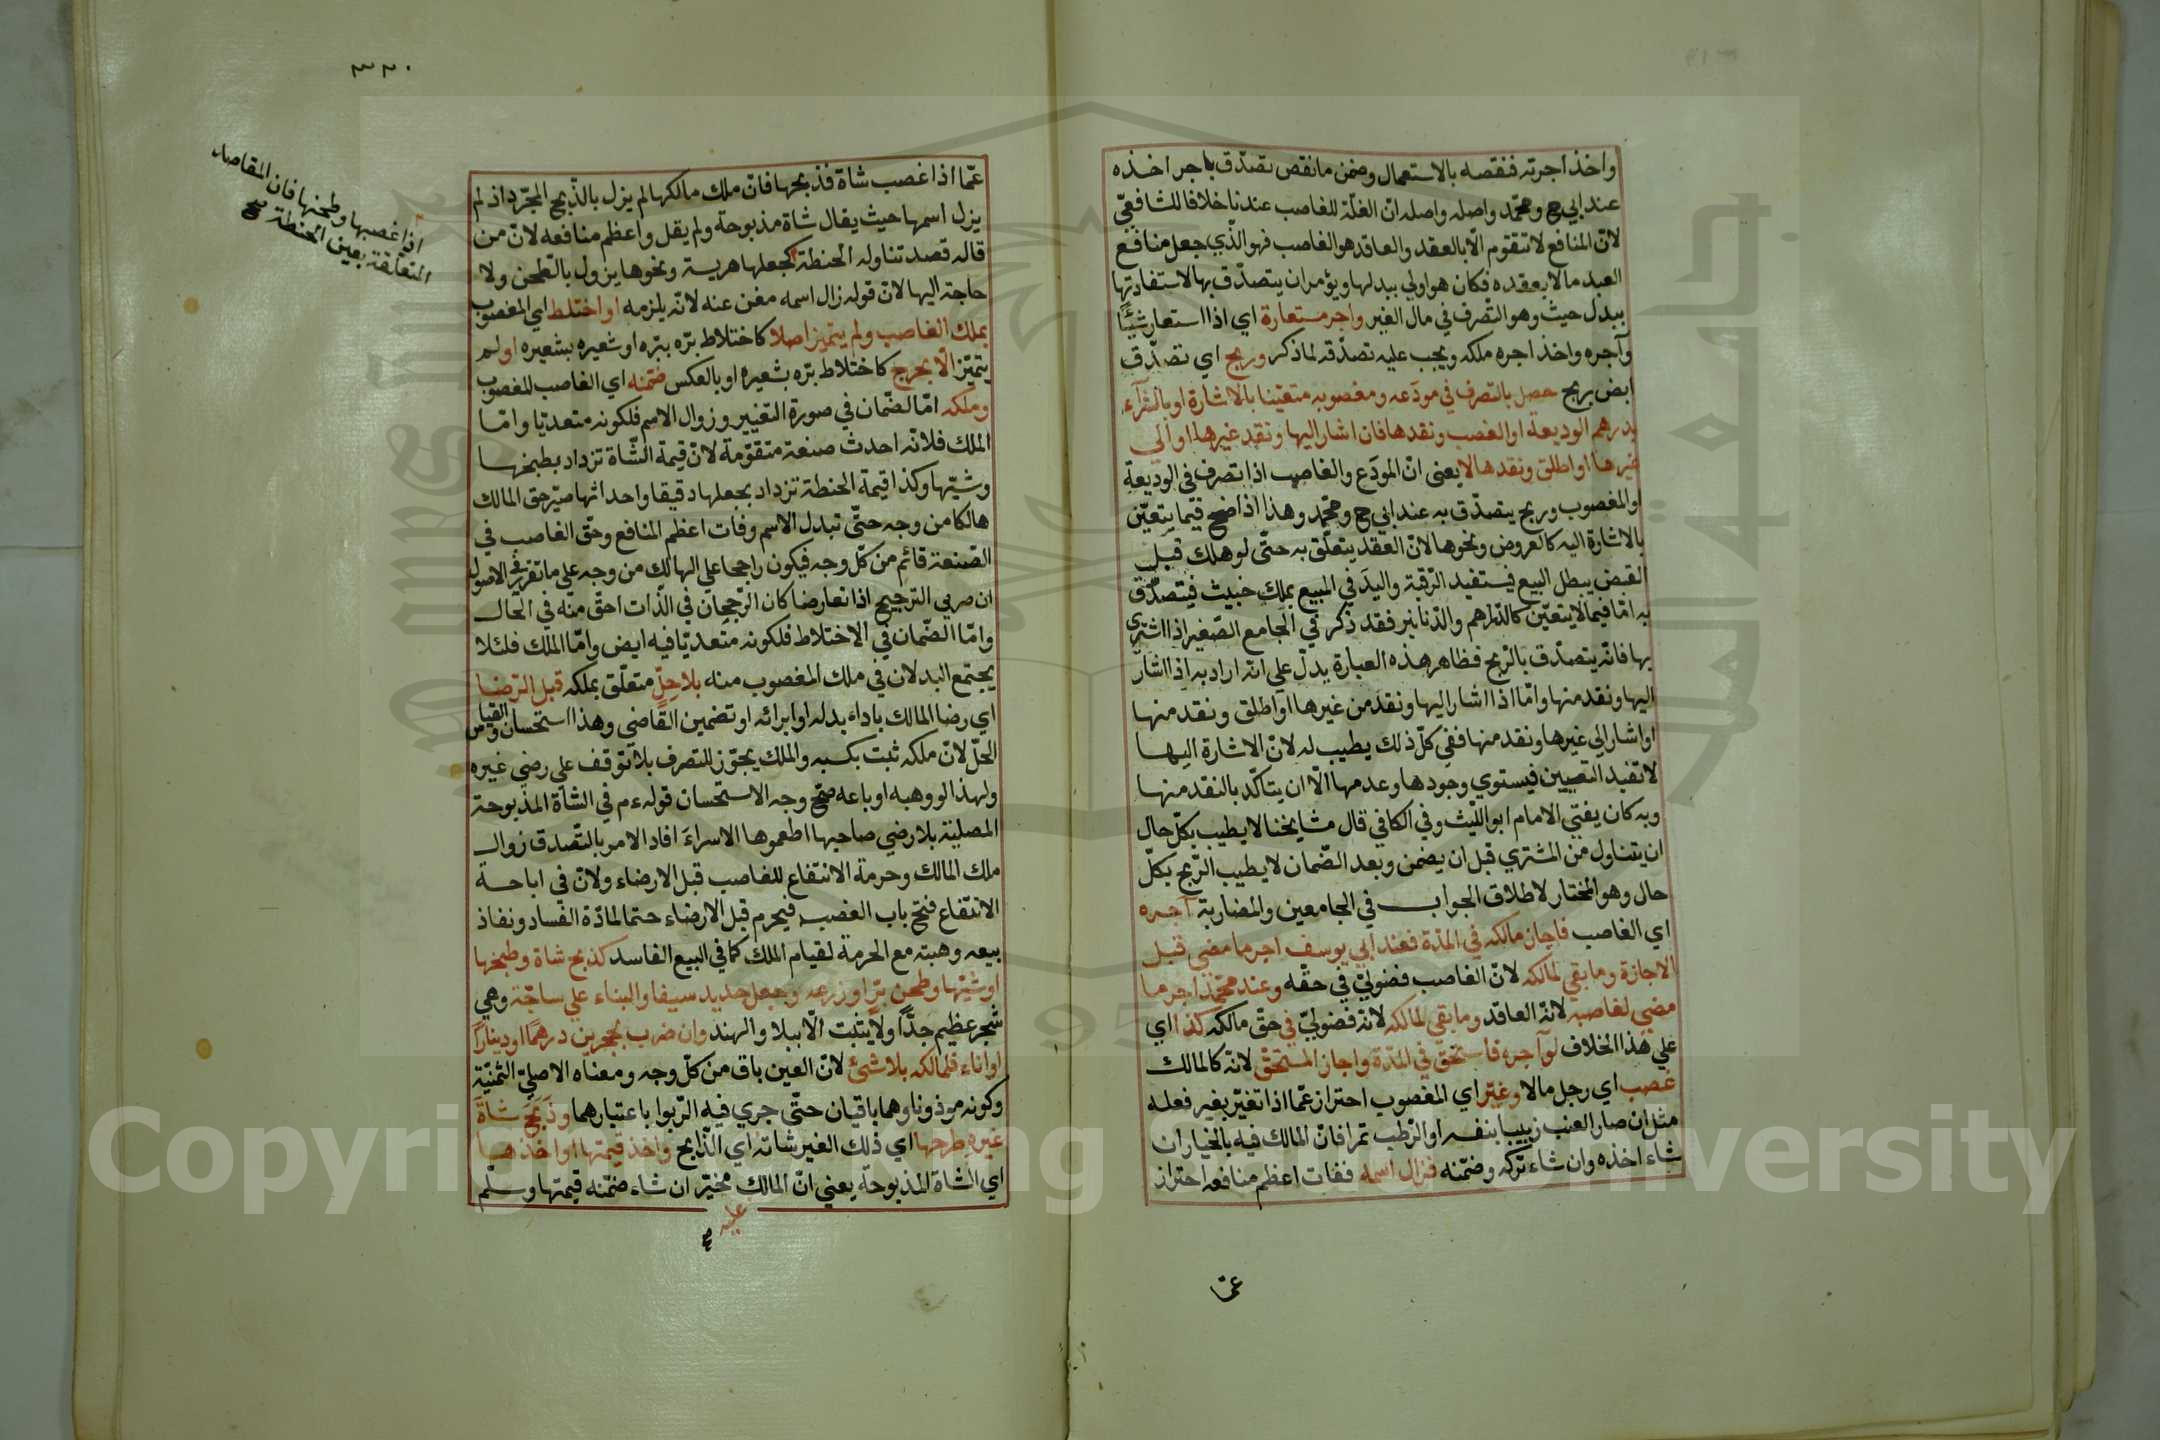 واخذ اجرته فنقصه بالاستعمال وضمن ما نقص تصدّق باجر اخذه
عند ابي ح ومحمّد واصله واصله انّ الغلّة للغاصب عندنا خلافا للشافعيّ
لانّ المنافع لا تتقوم الّا بالعقد والعاقد هو الغاصب فهو الّذي جعل منافع
العبد مالا بعقده فكان هو اولي ببدلها ويؤمر ان يتصدّق بها لاستفادتها
ببدل حيث وهو التّصرف في مال الغير واجر مستعارة اي اذا استعار شيئًا
وآجره واخذ اجره ملكه ويجب عليه تصدّقه لما ذكر وربح اي تصدّق
ايض بربح حصل بالتصرف في مودَعه ومغصوبه متعيّنا بالاشارة او بالشرآء
بدرهم الوديعة او الغصب ونقدها فان اشار اليها ونقد غيرها او الي
غيرها او اطلق ونقدها لا يعني انّ المودَع والغاصب اذا تصرف في الوديعة
او المغصوب وربح يتصدّق به عند ابي ح ومحمّد وهذا اذا صح فيما يتعيّن
بالاشارة اليه كالعروض ونحوها لانّ العقد يتعلّق به حتّى لو هلك قبل
القبض يبطل البيع فيستفيد الرّقبة واليد في المبيع بملك خبيث فيتصدّق
به امّا فيما لا يتعيّن كالدّراهم والدّنانير فقد ذكر في الجامع الصّغير اذا اشترى
بها فانّه يتصدّق بالرّبح فظاهر هذه العبارة يدلّ علي انّه اراد به اذا اشار
اليها ونقد منها وامّا اذا اشار اليها ونقد من غيرها او اطلق ونقد منها
او اشار الي غيرها ونقد منها ففي كلّ ذلك يطيب له لانّ الاشارة اليها
لا تفيد التعيين فيستوي وجودها وعدمها الّا ان يتاكّد بالنقد منها
وبه كان يفتي الامام ابو اللّيث وفي الكافي قال مشايخنا لا يطيب بكلّ حال
ان يتناول من المشتري قبل ان يضمن وبعد الضّمان لا يطيب الرّبح بكلّ
حال وهو المختار لاطلاق الجواب في الجامعين والمضاربة آجره
اي الغاصب فاجاز مالكه في المدّة فعند ابي يوسف اجر ما مضي قبل
الاجازة وما بقي لمالكه لانّ الغاصب فضوليّ في حقّه وعند محمّد اجر ما
مضي لغاصبه لانّه العاقد وما بقي لمالكه لانّه فضوليّ في حقّ مالكه كذا اي
علي هذا الخلاف لو آجره فاستحق في المدّة واجاز المستحقّ لانّه كالمالك
غصب اي رجل مالا وغيّر اي المغصوب احتراز عمّا اذا تغيّر بغير فعله
مثل ان صار العنب زبيبا بنفسه او الرّطب تمرا فانّ المالك فيه بالخيار ان
شاء اخذه وان شاء تركه وضمّنه فزال اسمه ففات اعظم منافعه احتراز
عمّا
٣٢٠
عمّا اذا غصب شاة فذبحها فانّ ملك مالكها لم يزل بالذّبح المجرّد اذ لم
يزل اسمها حيث يقال شاة مذبوحة ولم يقل واعظم منافعه لانّ من
قاله قصد تناوله الحنطة كجعلها هريسة ونحوها يزول بالطحن ولا
حاجة اليها لانّ قوله زال اسمه مغن عنه لانّه يلزمه او اختلط اي المغصوب
بملك الغاصب ولم يتميز اصلا كاختلاط برّه ببرّه او شعيره بشعيره او لم
يتميّز الّا بحرج كاختلاط برّه بشعيره او بالعكس ضمّنه اي الغاصب للمغصوب
وملكه امّا لضّمان في صورة التّغيير وزوال الاسم فلكونه متعديّا وامّا
الملك فلانّه احدث صنعة متقوّمة لانّ قيمة الشّاة تزداد بطبخها
وشيّها وكذا قيمة الحنطة تزداد بجعلها دقيقا واحداثها صيّر حق المالك
هالكا من وجه حتّى تبدل الاسم وفات اعظم المنافع وحقّ الغاصب في
الصّنعة قائم من كلّ وجه فيكون راجحا علي الهالك من وجه علي ما تقرر في الاصول
ان ضربي الترجيح اذا تعارضا كان الرّجحان في الذّات احقّ منه في الحال
وامّا الضّمان في الاختلاط فلكونه متعديّا فيه ايض وامّا الملك فلئلا
يجتمع البدلان في ملك المغصوب منه بلا حلّ متعلّق بملكه قبل الرّضا
اي رضا المالك باداء بدله او ابرائه او تضمين القاضي وهذا استحسان والقياس
الحلّ لانّ ملكه ثبت بكسبه والملك يجوّز للتصرف بلا توقف علي رضي غيره
ولهذا لو وهبه او باعه صحّ وجه الاستحسان قوله ءم في الشاة المذبوحة
المصلية بلا رضي صاحبها اطعموها الاسراءَ افاد الامر بالتّصدق زوال
ملك المالك وحرمة الانتفاع للغاصب قبل الارضاء ولانّ في اباحة
الانتفاع فتح باب الغصب فيحرم قبل الارضاء حتما لمادّة الفساد ونفاذ
بيعه وهبته مع الحرمة لقيام الملك كما في البيع الفاسد كذبح شاة وطبخها
او شيّها وطحن برّ او زرعه وجعل حديد سيفا والبناء علي ساجّة وهي
شجر عظيم جدّاً ولا ينبت الّا ببلاد الهند وان ضرب بحجرين درهمًا او دينارًا
او اناء فلمالكه بلا شئ لانّ العين باق من كلّ وجه ومعناه الاصليّ الثمنيّة
وكونه موزونا وهما باقيان حتّى جري فيه الرّبوا باعتبارهما وذَبَحَ شاةَ
غيره طرحها اي ذلك الغير شاته اي الذّابح واخذ قيمتها او اخذها
اي الشاة المذبوحة يعني انّ المالك مخيّر ان شاء ضمّنه قيمتها وسلّم
عليه
اذا غصبها وطحنها فان المقاصد
المتعلقة بعين الحنطة صح